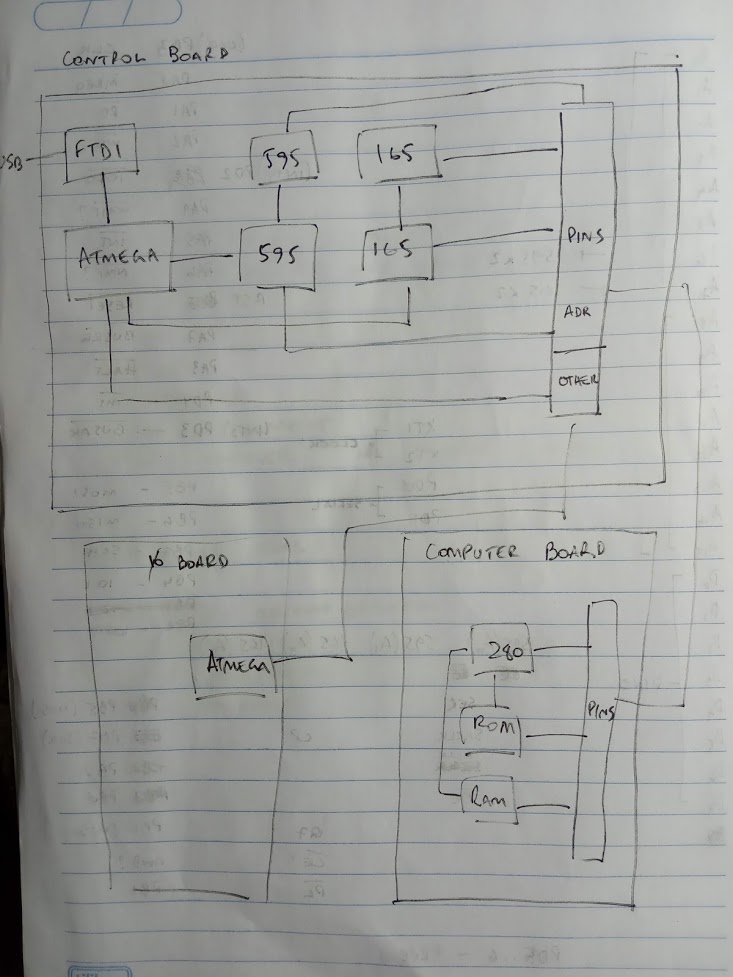 CONTROL BOARD
USB
FTDI
595
165
ATMEGA
595
165
PINS
ADR
OTHER
I/O BOARD
ATMEGA
COMPUTER BOARD
Z80
ROM
RAM
PINS